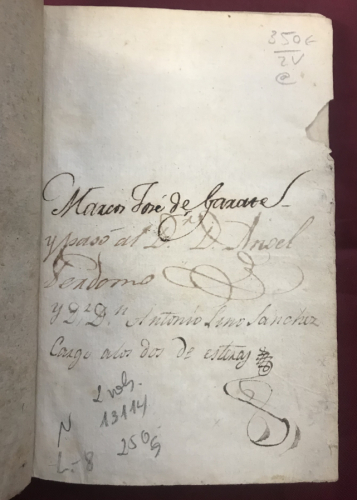 350€
2V
@
Marcos José de Garate
y pasó al Dr. D. Angel
Perdomo
y Dr. Dn. Antonio Lino Sanchez
Cargo a los dos de
2 vols.
13114
250
N
L-8